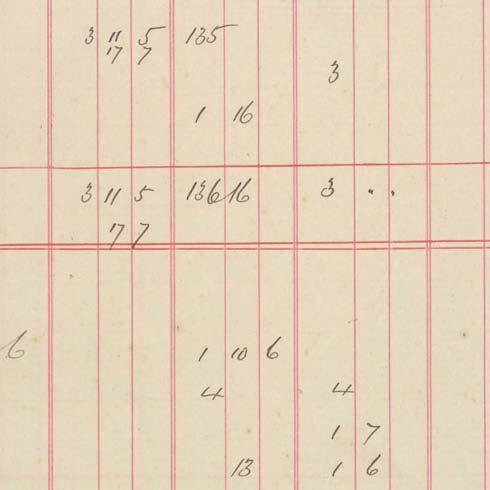 3 11 5 135
17 7
3
1 16
3 11 5 136 16 3 " "
17 7
6 1 10 6
4 4
1 7
13 1 6